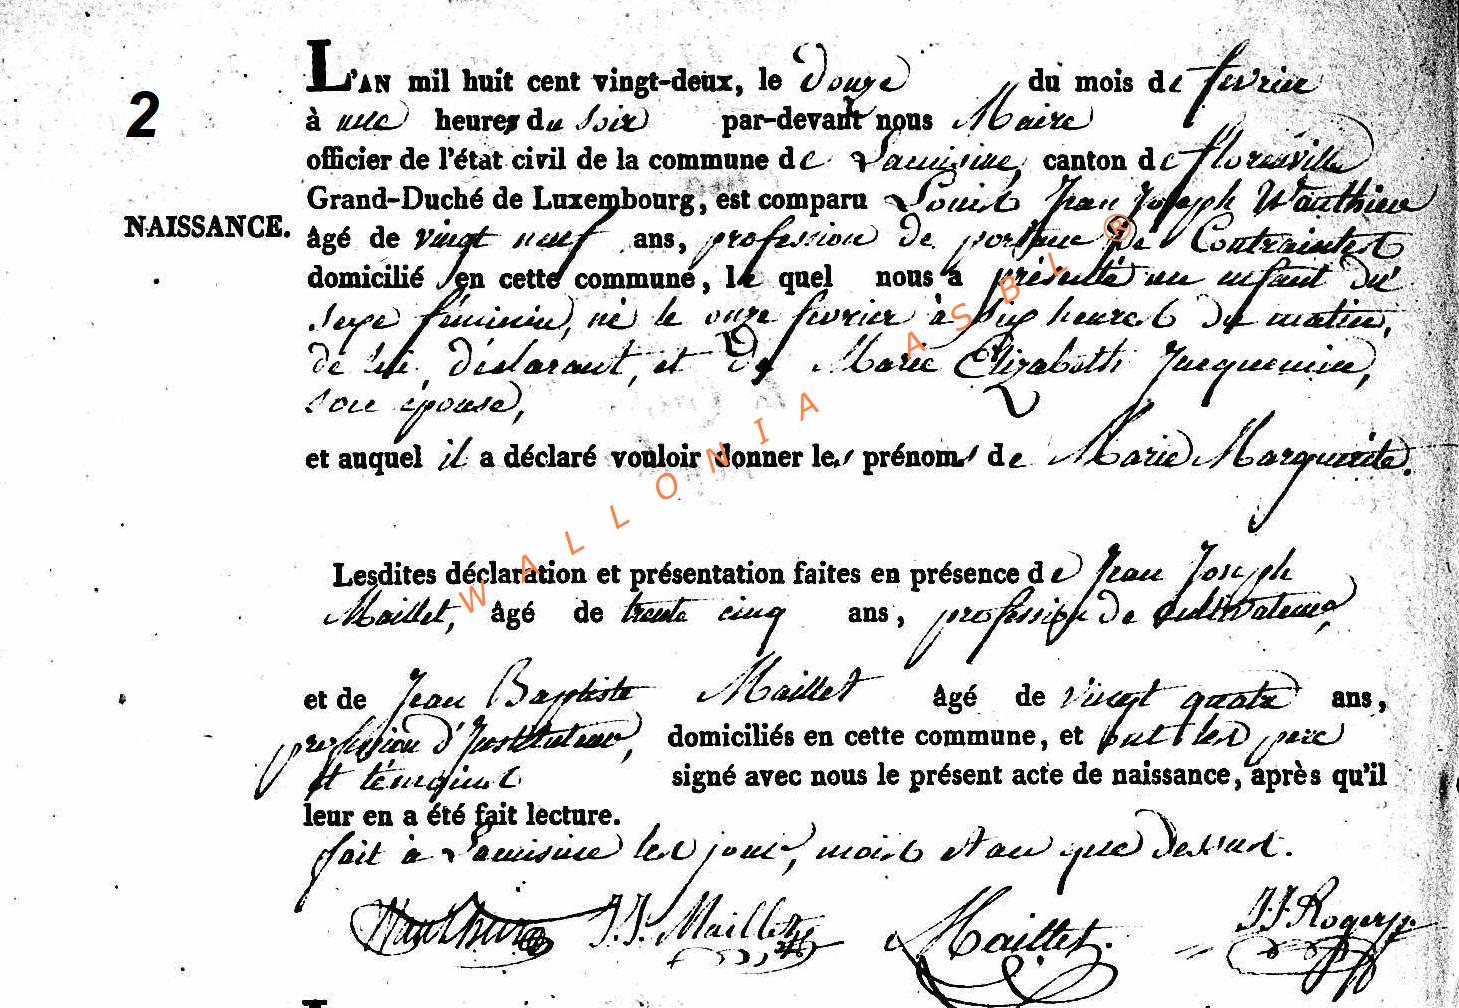 L'AN mil huit cent vingt-deux, le douze du mois de fevrier
2
à une heure du soir par-devant nous Maire
officier de l'état civil de la commune de Lacuisine, canton de florenville
Grand-Duché de Luxembourg, est comparu Louis Jean Joseph Wauthier
NAISSANCE.
âgé de vingt neuf ans, profession de porteur de Contraintes
domicilié en cette commune, le quel nous a présenté un enfant du
sexe féminin, né le onze fevrier à six heures du matin,
de lui, déclarant, et de Marie Elizabeth Jacquemin,
son épouse,
et auquel il a déclaré vouloir donner les prénoms de Marie Marguerite.
Lesdites déclaration et présentation faites en présence de Jean Joseph
Maillet, âgé de trente cinq ans, profession de cultivateur,
et de Jean Baptiste Maillet âgé de vingt quatre ans,
profession d'Instituteur, domiciliés en cette commune, et ont les pere
et témoins signé avec nous le présent acte de naissance, après qu'il
leur en a été fait lecture.
fait à Lacuisine les jour, mois et an que dessus.
Wauthier J.J. Maillet Maillet. J.J. Rogers
WALLONIA ASBL ®